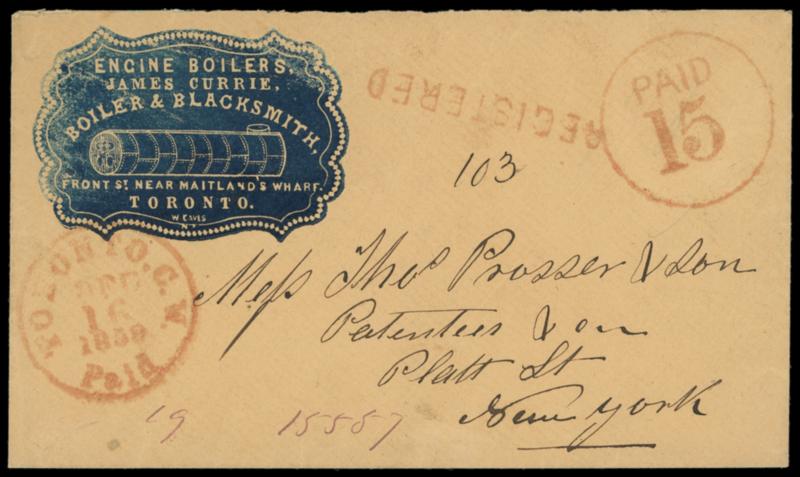 ENGINE BOILERS,
JAMES CURRIE,
BOILER & BLACKSMITH,
FRONT ST. NEAR MAITLAND'S WHARF.
TORONTO.
W. EAVES
N.Y.
REGISTERED
PAID
15
103
Mess Thos Prosser & Son
Patentees &
Platt St
New York
TORONTO. C.W.
16
Paid
19 15587